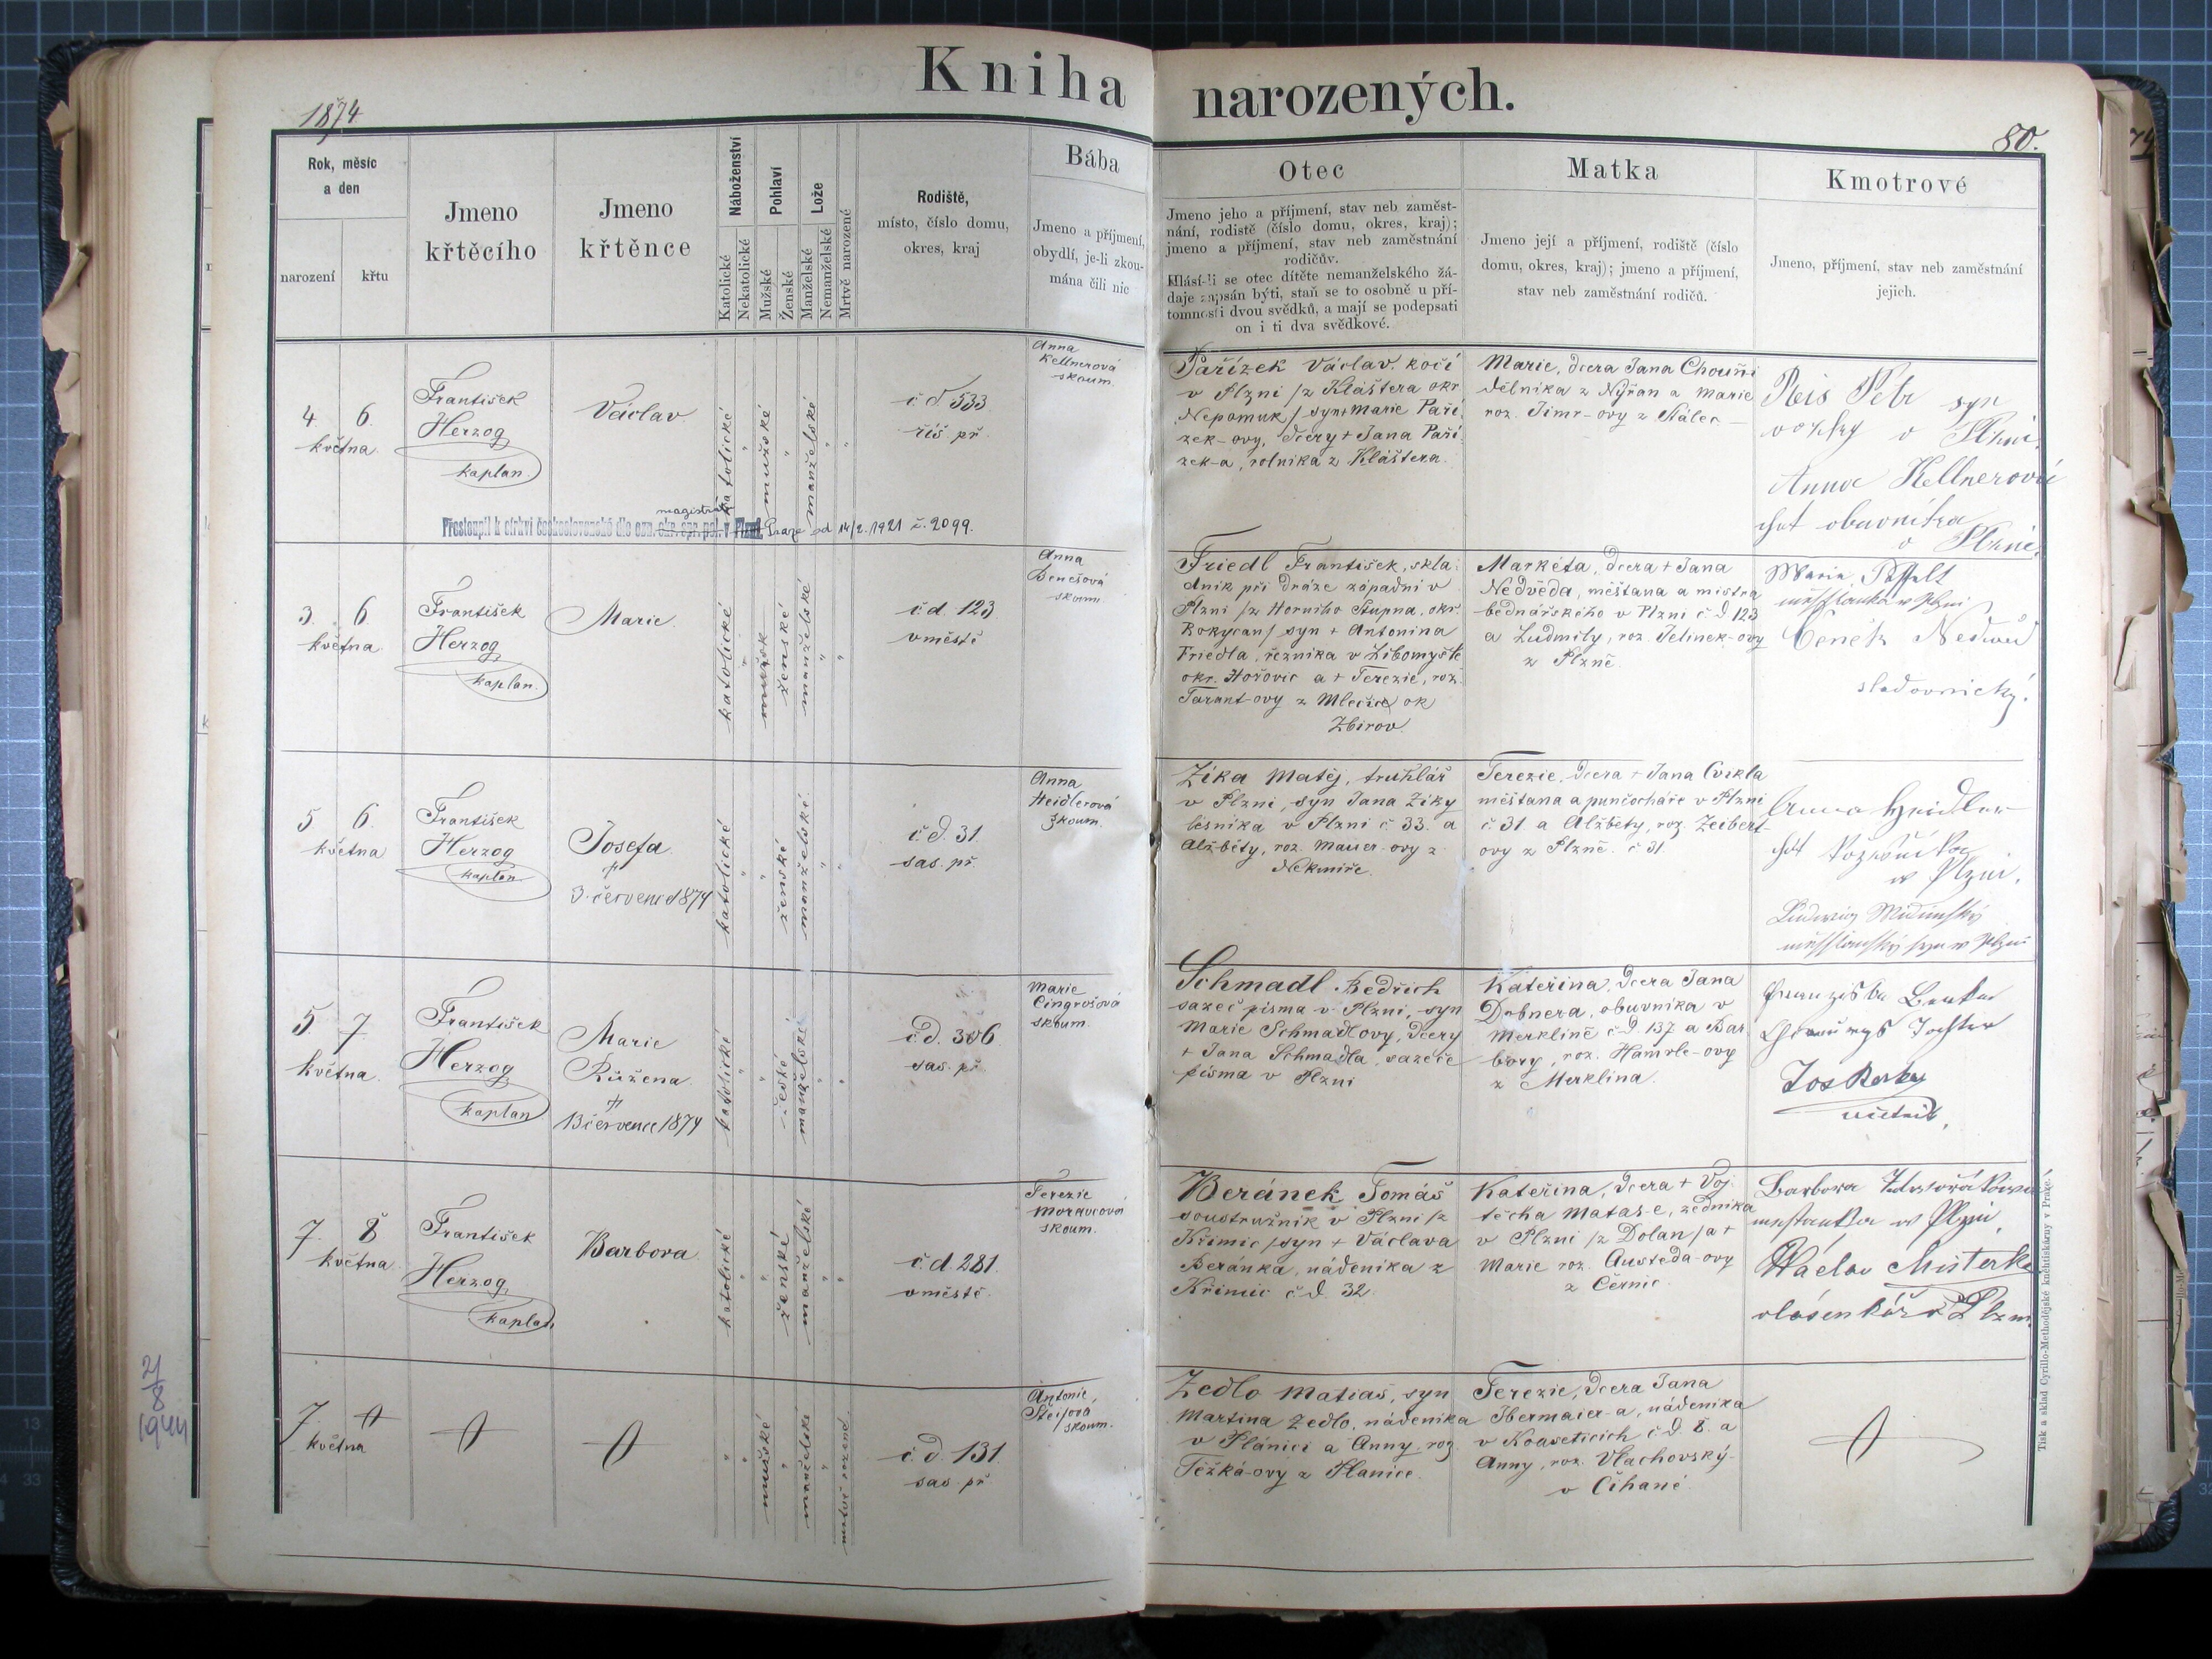 Kniha narozených.
1874
80.
Rok, měsíc
a den
narození
křtu
Jmeno
křtěcího
Jmeno
křtěnce
Náboženství
Katolické
Nekatolické
Pohlaví
Mužské
Ženské
Lože
Manželské
Nemanželské
Mrtvě narozené
Rodiště,
místo, číslo domu,
okres, kraj
Bába
Jmeno a příjmení,
obydlí, je-li zkou-
mána čili nic
Otec
Jmeno jeho a příjmení, stav neb zaměst-
nání, rodistě (číslo domu, okres, kraj);
jmeno a příjmení, stav neb zaměstnání
rodičův.
Hlásí-li se otec dítěte nemanželského žá-
daje zapsán býti, staň se to osobně u pří-
tomnosti dvou svědků, a mají se podepsati
on i ti dva svědkové.
Matka
Jmeno její a příjmení, rodiště (číslo
domu, okres, kraj); jmeno a příjmení,
stav neb zaměstnání rodičů.
Kmotrové
Jmeno, příjmení, stav neb zaměstnání
jejich.
4 6.
května
František
Herzog
kaplan
Václav
katolické
mužské
manželské
č d 533
říš. př.
Anna
Kellnerová
skoum.
Pařízek Václav. kočí
v Plzni /z Kláštera okr
Nepomuk/ syn + Marie Paří
zek-ovy, dcery + Jana Paří
zek-a, rolníka z Kláštera
Marie, dcera Jana
dělníka z Nýřan a Marie
roz.
Petr syn
v Plzni
Anna Kellnerová
v Plzni
Přestoupil k církvi československé dle ozn. okr. spr. pol. v Plzni magistrátu Praze od 14/2. 1921 č. 2099.
3. 6
května
František
Herzog
kaplan
Marie
katolické
mužsk
ženské
manželské
č d. 123
v městě
Anna
Benešová
skoum
Friedl František, skla
dník při dráze západní v
Plzni /z Horního Stupna, okr.
Rokycan/ syn + Antonína
Friedla, řezníka v
okr. Hořovic a + Terezie, roz.
Tarant-ovy z ok
Zbirov
Markéta, dcera + Jana
Nedvěda, měštana a mistra
bednářského v Plzni č d 123
a Ludmily, roz. Jelínek-ovy
z Plzně
Čeněk
sladovnický
5 6.
května
František
Herzog
kaplan
Josefa
†
3. července 1874
katolické
ženské
manželské
č. d. 31.
sas. př.
Anna
Heidlerová
zkoum.
Zíka Matěj, truhlář
v Plzni, syn Jana Zíky
lesníka v Plzni č 33. a
Alžběty, roz. Mauer-ovy z
Nekmíře.
Terezie, dcera + Jana Cvikla
měštana a punčocháře v Plzni
č. 31 a Alžběty, roz. Zeibert-
ovy z Plzně. č 31.
Anna Heidler
w Plzni.
5. 7.
května
František
Herzog
kaplan
Marie
Růžena
†
13 července 1874
katolické
manželské
č. d. 306
sas. př.
Marie
Cingrošová
skoum.
Schmadl Bedřich
sazeč písma v Plzni, syn
Marie Schmadlovy, dcery
+ Jana Schmadla, sazeče
písma v Plzni
Kateřina, dcera Jana
Dobnera, obuvníka v
Merklíně č d 137 a Bar
bory, roz. Hamrle-ovy
z Merklína.
7. 8
května
František
Herzog
kaplan
Barbora
katolické
ženské
manželské
č. d. 281.
v městě.
Terezie
Moravcová
skoum.
Beránek Tomáš
soustružník v Plzni /z
Křimic /syn + Václava
Beránka, nádeníka z
Křimic č d. 32.
Kateřina, dcera + Voj
těcha Matas-e, zedníka
v Plzni /z Dolan/a +
Marie roz. Austeda-ovy
z Černic.
Barbora
w Plzni.
Václav Misterka
vlásenkář v Plzni
7
května
mužské
manželské
mrtvě rozené
č. d. 131.
sas. př
Antonie
skoum.
Zedlo Matiaš, syn
Martina Zedlo, nádeníka
v Plánici a Anny, roz.
Těžká-ovy z Planice.
Terezie, dcera Jana
Ibermaier-a, nádeníka
v č d. 8. a
Anny, roz. Vlachovský-
v Číhané
2/8
1944
Tisk a sklad Cyrillo-Methodějské knihtiskárny v Praze.